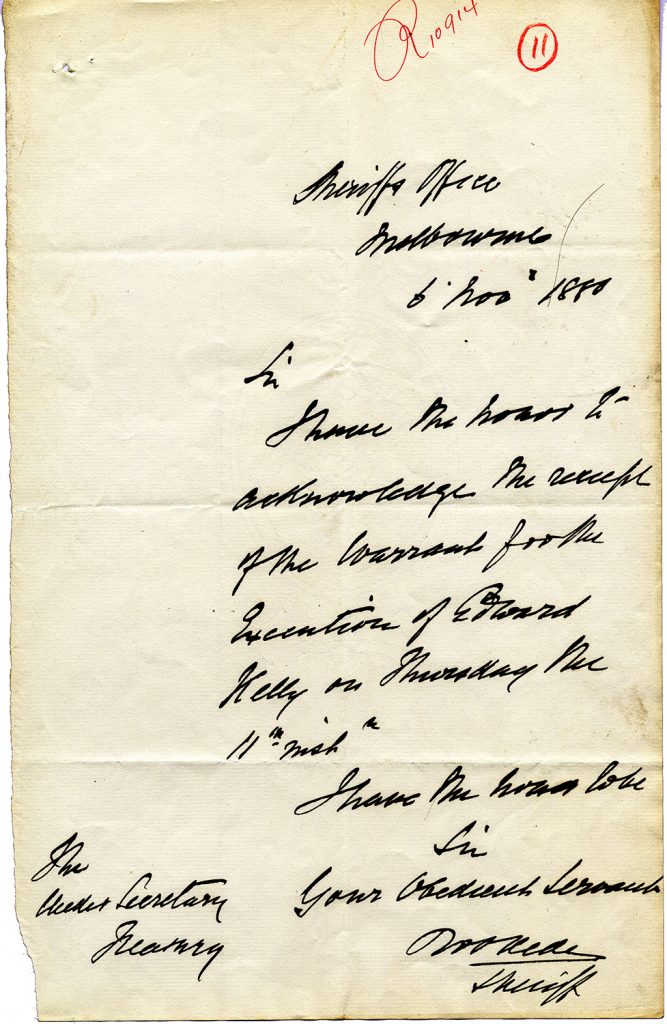 R10914
11
Sheriffs Office
Melbourne
6 Novr 1880
Sir
I have the honor to
acknowledge the receipt
of the Warrant for the
Execution of Edward
Kelly on Thursday the
11th inst
I have the honor to be
Sir
Your Obedient Servant
Sheriff
The
Under Secretary
Treasury